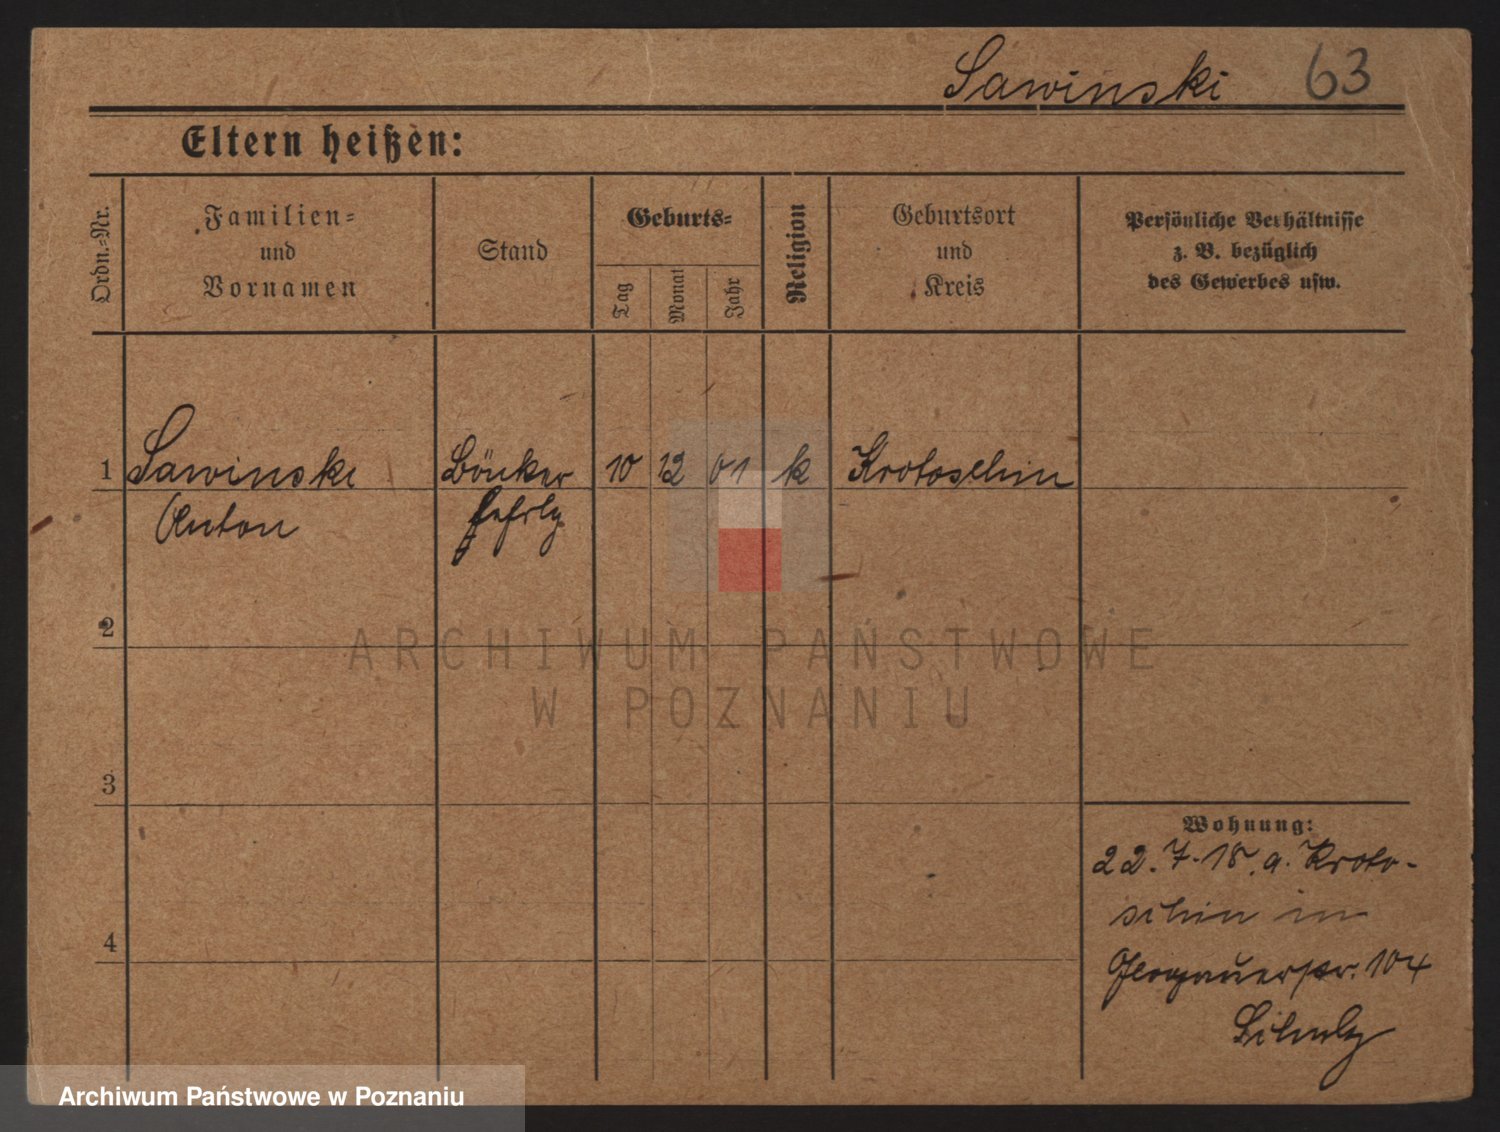 Sawinski 63
Eltern heißen:
Ordn.-Nr.
Familien-
und
Vornamen
Stand
Geburts-
Tag
Monat
Jahr
Religion
Geburtsort
und
Kreis
Persönliche Verhältnisse
z. B. bezüglich
des Gewerbes usw.
1 Sawinski 10 12 01 k Krotoschin
Anton
2
3
4
Wohnung:
22.7.18. a. Kroto-
schin in
Glogauerstr. 104
ARCHIWUM PAŃSTWOWE
W POZNANIU
Archiwum Państwowe w Poznaniu